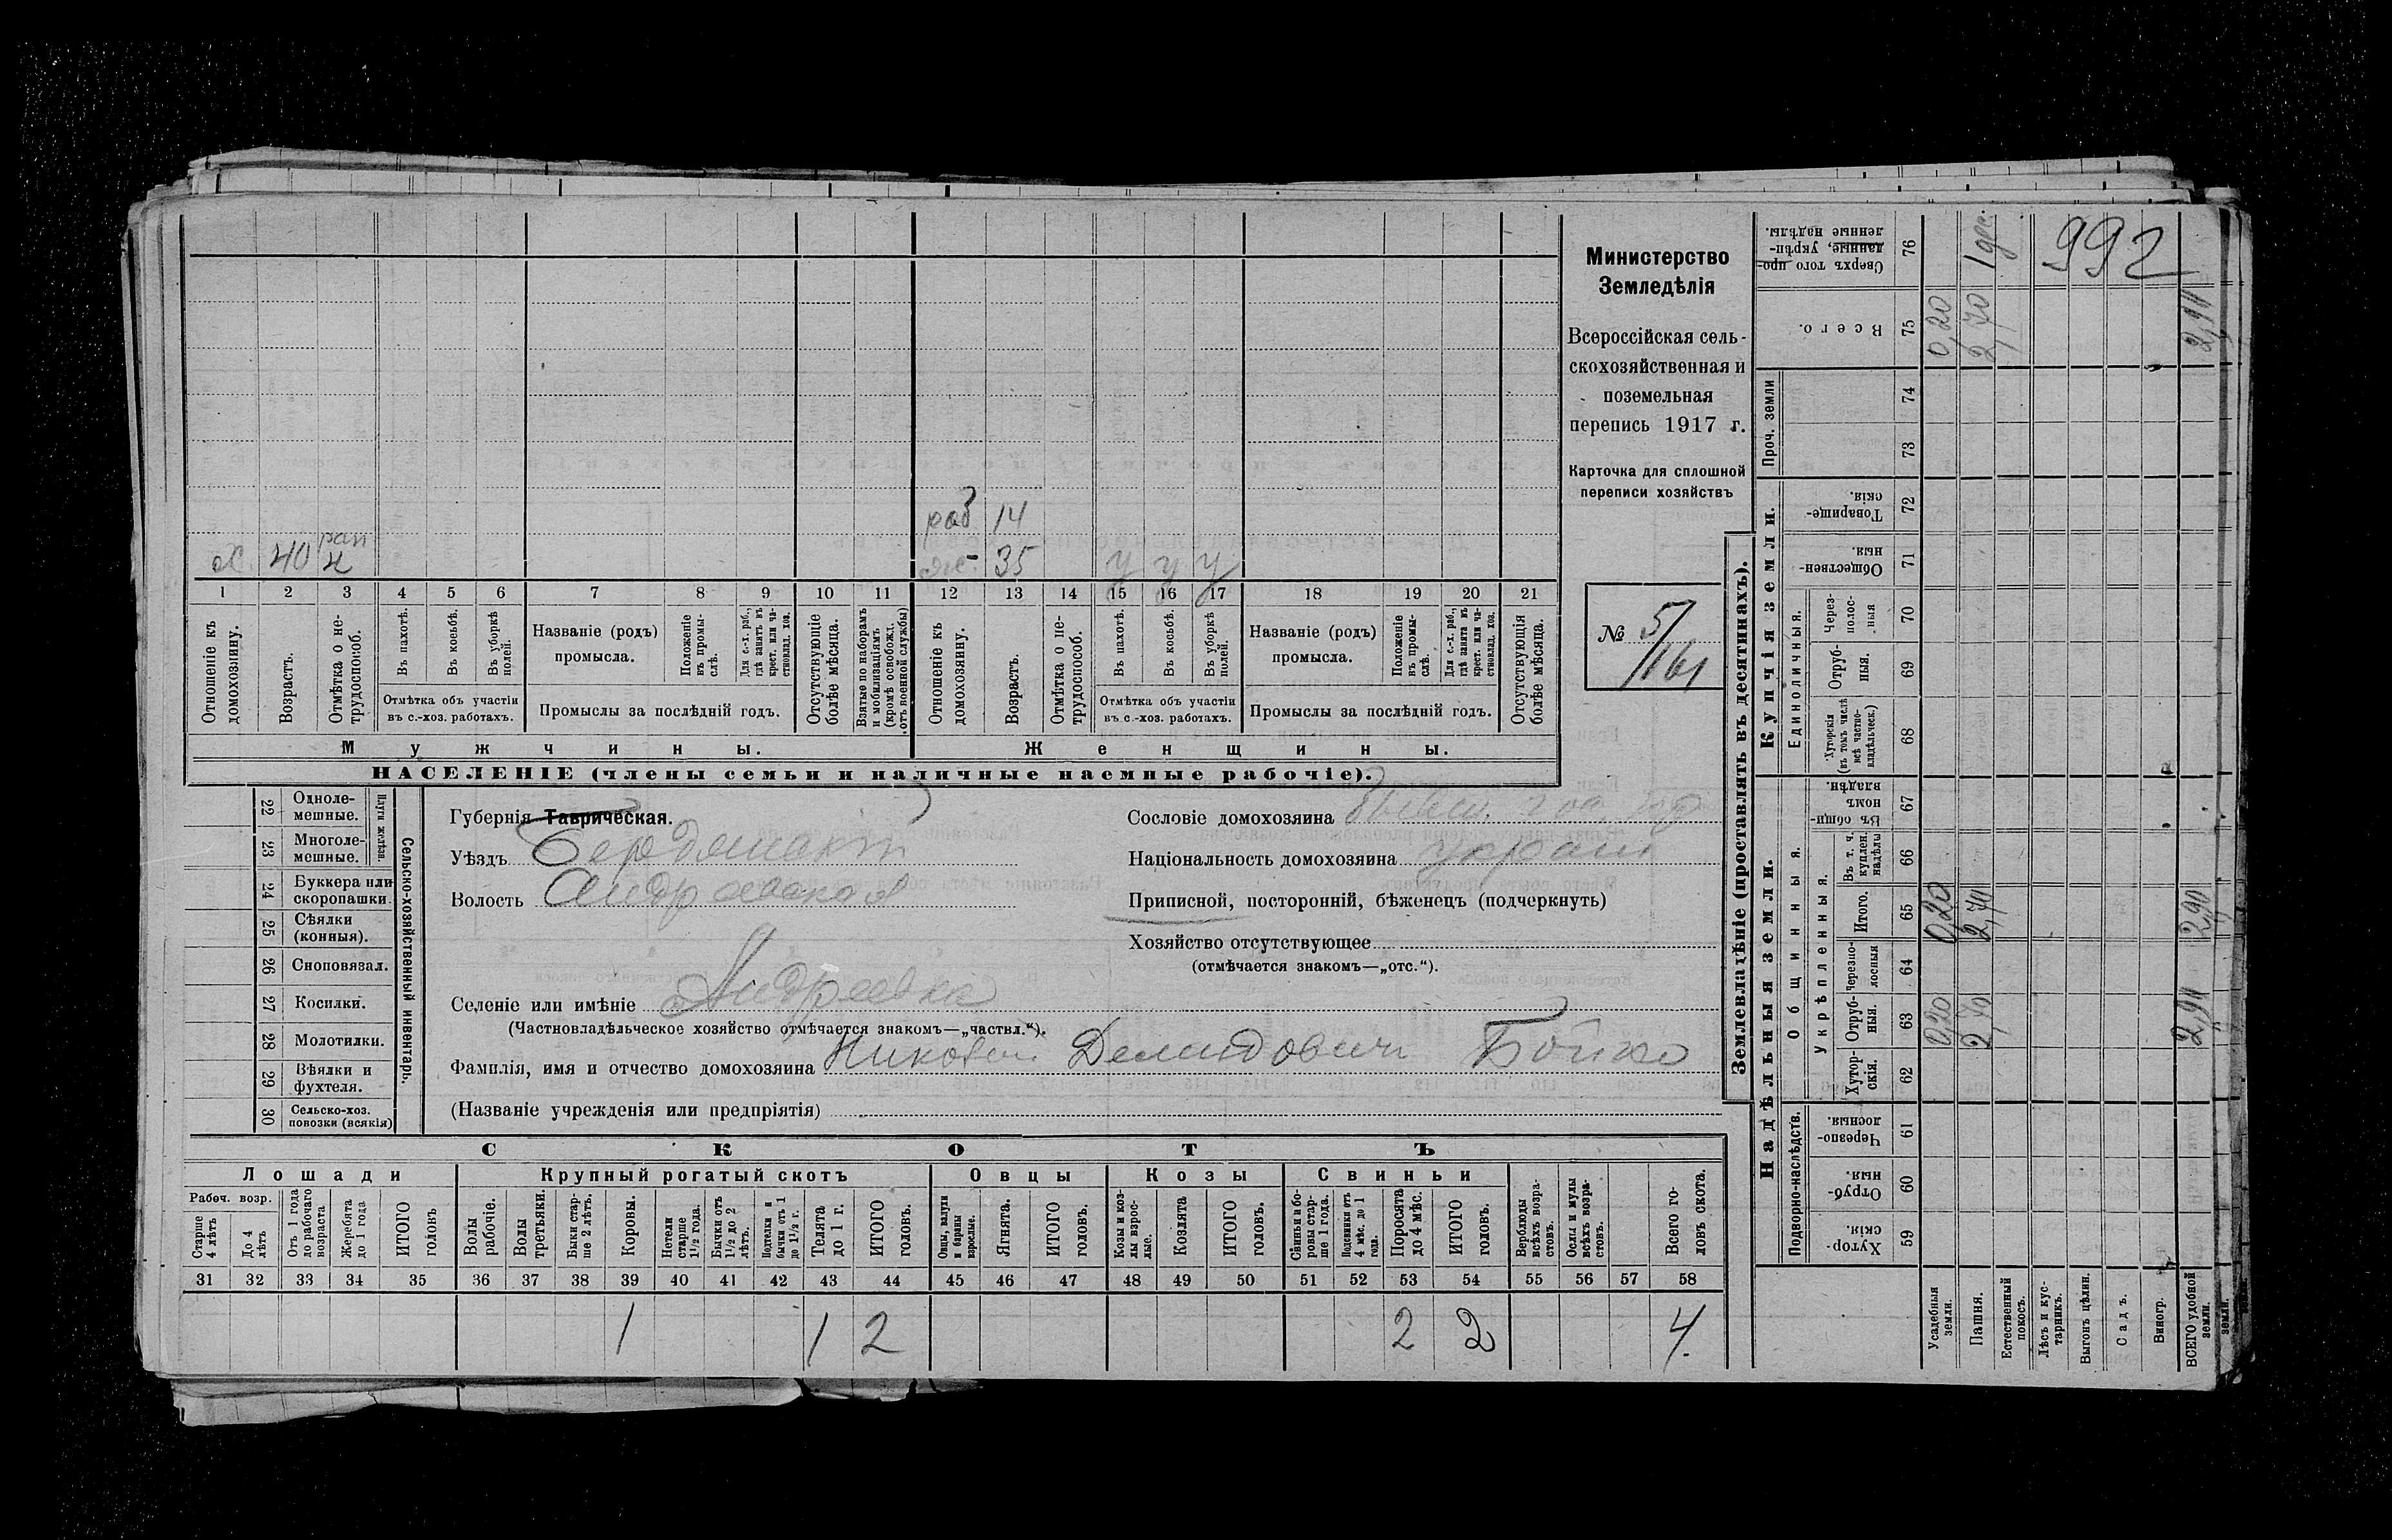 раб 14
х 40 рап н ж. 35 у у у
1 2 3 4 5 6 7 8 9 10 11 12 13 14 15 16 17 18 19 20 21
Отношеніе къ домохозяину.
Возрастъ.
Отмѣтка о нетрудоспособ.
Въ пахотѣ.
Въ косьбѣ.
Въ уборкѣ полей.
Отмѣтка объ участіи
въ с.-хоз. работахъ.
Названіе (родъ)
промысла.
Положеніе въ промыслѣ.
Для с.-х. раб., гдѣ занятъ въ крест. или частновлад. хоз.
Промыслы за послѣдній годъ.
Отсутствующіе болѣе мѣсяца.
Взятые по наборамъ и мобилизаціямъ (кромѣ освобожд. отъ военной службы)
Отношеніе къ домохозяину.
Возрастъ.
Отмѣтка о нетрудоспособ.
Въ пахотѣ.
Въ косьбѣ.
Въ уборкѣ полей.
Отмѣтка объ участіи
въ с.-хоз. работахъ.
Названіе (родъ)
промысла.
Положеніе въ промыслѣ.
Для с.-х. раб., гдѣ занята въ крест. или частновлад. хоз.
Промыслы за послѣдній годъ.
Отсутствующія болѣе мѣсяца.
Мужчины. Женщины.
НАСЕЛЕНІЕ (члены семьи и наличные наемные рабочіе).
Министерство
Земледѣлія
Всероссійская сель-
скохозяйственная и
поземельная
перепись 1917 г.
Карточка для сплошной
переписи хозяйствъ
№ 5/161
Сельско-хозяйственный инвентарь.
Плуги желѣзн.
22 Однолемешные.
23 Многолемешные.
24 Буккера или скоропашки.
25 Сѣялки (конныя).
26 Сноповязал.
27 Косилки.
28 Молотилки.
29 Вѣялки и фухтеля.
30 Сельско-хоз. повозки (всякія)
Губернія Таврическая.
Уѣздъ Бердянскій
Волость Андреевская
Селеніе или имѣніе Андреевка
(Частновладѣльческое хозяйство отмѣчается знакомъ—„частвл.“).
Фамилія, имя и отчество домохозяина Демидович Бойко
(Названіе учрежденія или предпріятія)
Сословіе домохозяина бывш. гос.
Національность домохозяина украин
Приписной, посторонній, бѣженецъ (подчеркнуть)
Хозяйство отсутствующее
(отмѣчается знакомъ—„отс.“).
СКОТЪ
Лошади Крупный рогатый скотъ Овцы Козы Свиньи
Рабоч. возр.
Старше 4 лѣтъ
До 4 лѣтъ
Отъ 1 года до рабочаго возраста
Жеребята до 1 года
ИТОГО головъ
Волы рабочіе.
Волы третьяки.
Быки старше 2 лѣтъ.
Коровы.
Нетели старше 1½ года.
Бычки отъ 1½ до 2 лѣтъ.
Подтелки и бычки отъ 1 до 1½ г.
Телята до 1 г.
ИТОГО головъ.
Овцы, валухи и бараны взрослые.
Ягнята.
ИТОГО головъ.
Козы и козлы взрослые.
Козлята
ИТОГО головъ.
Свиньи и боровы старше 1 года.
Подсвинки отъ 4 мѣс. до 1 года.
Поросята до 4 мѣс.
ИТОГО головъ.
Верблюды всѣхъ возрастовъ.
Ослы и мулы всѣхъ возрастовъ.
Всего головъ скота.
31 32 33 34 35 36 37 38 39 40 41 42 43 44 45 46 47 48 49 50 51 52 53 54 55 56 57 58
1 1 2 2 2 4.
Землевладѣніе (проставлять въ десятинахъ).
Надѣльныя земли. Купчія земли.
Подворно-наслѣдств.
Общинныя.
Укрѣпленныя.
Единоличныя.
Проч. земли
Хуторскія. 59
Отрубныя. 60
Черезполосныя. 61
Хуторскія. 62
Отрубныя. 63
Черезполосныя 64
Итого. 65
Въ т. ч. куплен. надѣлы 66
Въ общинномъ владѣн. 67
Хуторскія (въ томъ числѣ всѣ частновладѣльческ.) 68
Отрубныя. 69
Черезполосныя 70
Общественныя. 71
Товарищескія. 72
73
74
Всего. 75
Сверхъ того проданные, укрѣпленные надѣлы. 76
Усадебныя земли. 0,20 0,20 0,20
Пашня. 2,70 2,70 2,70 1 дес.
Естественный покосъ.
Лѣсъ и кустарникъ.
Выгонъ цѣлин.
Садъ.
Виногр.
ВСЕГО удобной земли. 2,90 2,90 2,90
земли.
992